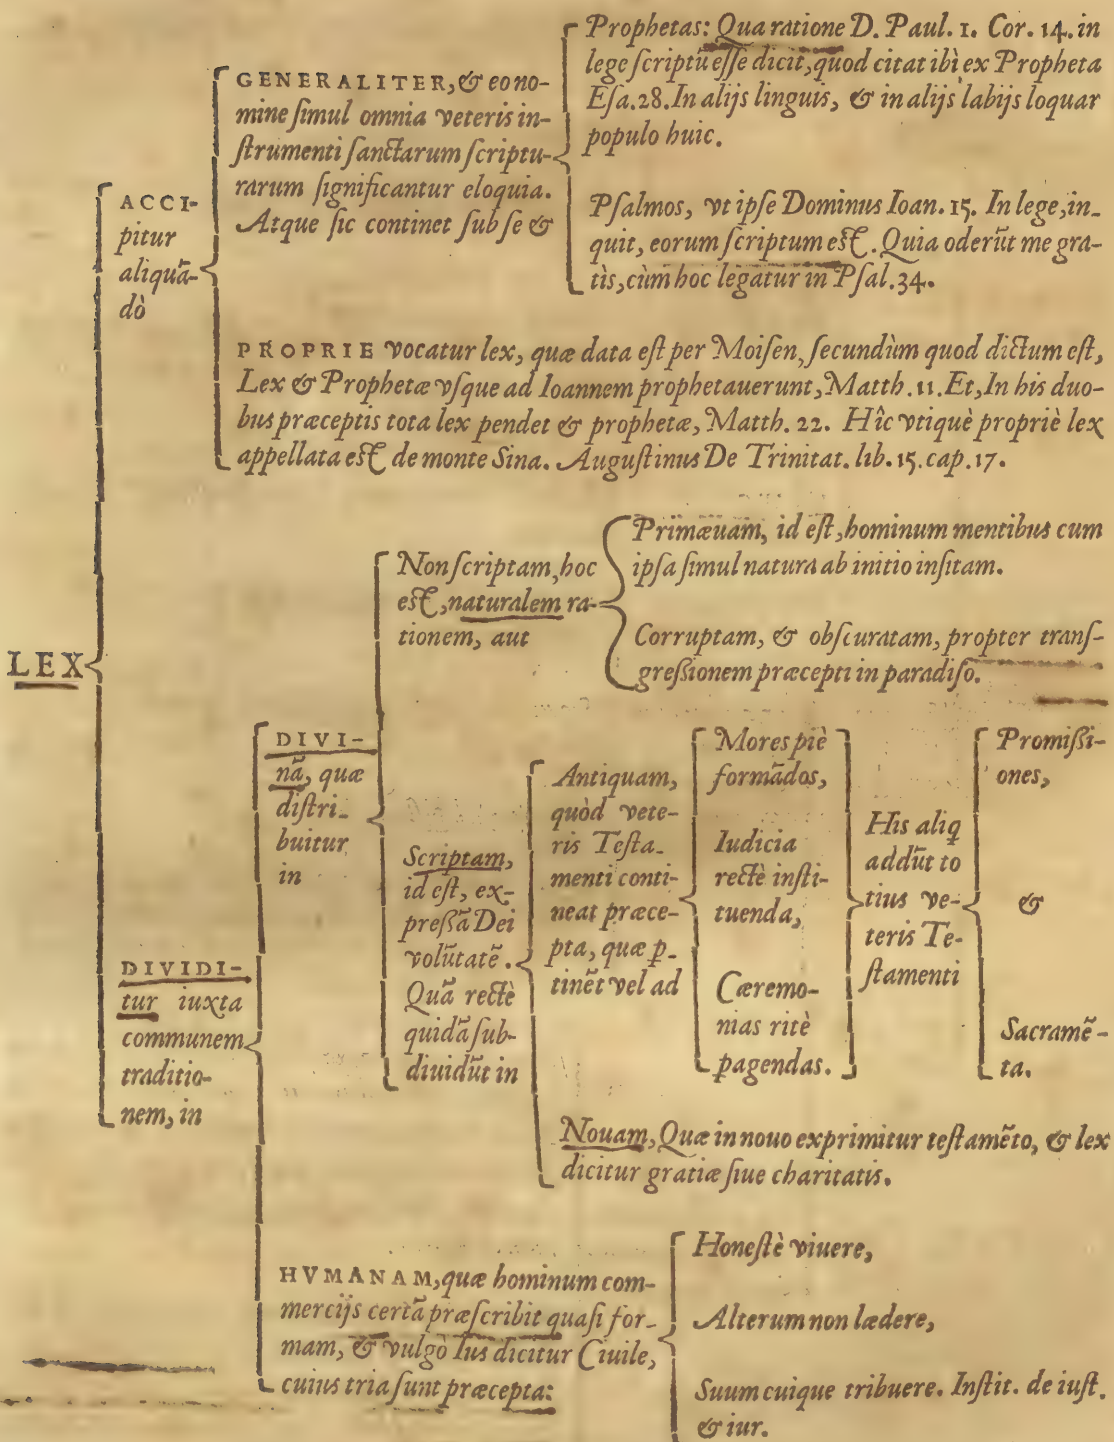 LEX
ACCI-
pitur
aliquã-
dò
GENERALITER, & eo no-
mine ſimul omnia veteris in-
ſtrumenti ſanctarum ſcriptu-
rarum ſignificantur eloquia.
Atque ſic continet ſub ſe &
Prophetas: Qua ratione D. Paul. 1. Cor. 14. in
lege ſcriptũ eſſe dicit, quod citat ibì ex Propheta
Eſa. 28. In alijs linguis, & in alijs labijs loquar
populo huic.
Pſalmos, vt ipſe Dominus Ioan. 15. In lege, in-
quit, eorum ſcriptum eſt. Quia oderũt me gra-
tìs, cùm hoc legatur in Pſal. 34.
PROPRIE vocatur lex, quæ data eſt per Moiſen, ſecundùm quod dictum eſt,
Lex & Prophetæ vſque ad Ioannem prophetauerunt, Matth. 11. Et, In his duo-
bus præceptis tota lex pendet & prophetæ, Matth. 22. Hîc vtiquè propriè lex
appellata eſt de monte Sina. Auguſtinus De Trinitat. lib. 15. cap. 17.
DIVIDI-
tur iuxta
communem
traditio-
nem, in
DIVI-
nã, quæ
diſtri-
buitur
in
Non ſcriptam, hoc
eſt, naturalem ra-
tionem, aut
Primæuam, id eſt, hominum mentibus cum
ipſa ſimul natura ab initio inſitam.
Corruptam, & obſcuratam, propter tranſ-
greſsionem præcepti in paradiſo.
Scriptam,
id eſt, ex-
preſſã Dei
volũtatẽ.
Quã rectè
quidã ſub-
diuidũt in
Antiquam,
quòd vete-
ris Teſta-
menti conti-
neat præce-
pta, quæ p-
tinẽt vel ad
Mores piè
formãdos,
Iudicia
rectè inſti-
tuenda,
Cæremo-
nias ritè
pagendas.
His aliq
addũt to
tius ve-
teris Te-
ſtamenti
Promiſsi-
ones,
&
Sacramẽ-
ta.
Nouam, Quæ in nouo exprimitur teſtamẽto, & lex
dicitur gratiæ ſiue charitatis.
HVMANAM, quæ hominum com-
mercijs certã præſcribit quaſi for-
mam, & vulgò Ius dicitur Ciuile,
cuius tria ſunt præcepta:
Honeſtè viuere,
Alterum non lædere,
Suum cuique tribuere. Inſtit. de iuſt.
& iur.